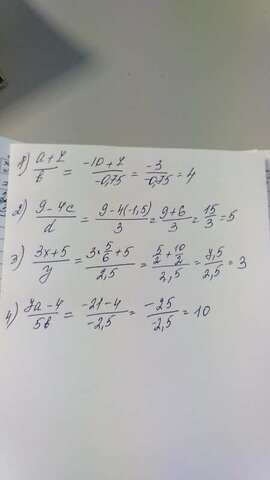 1) (a+7)/b = (-10+7)/(-0,75) = (-3)/(-0,75) = 4
2) (9-4c)/d = (9-4(-1,5))/3 = (9+6)/3 = 15/3 = 5
3) (3x+5)/y = (3·5/6+5)/2,5 = (5/2+10/2)/2,5 = 7,5/2,5 = 3
4) (7a-4)/5b = (-21-4)/(-2,5) = (-25)/(-2,5) = 10